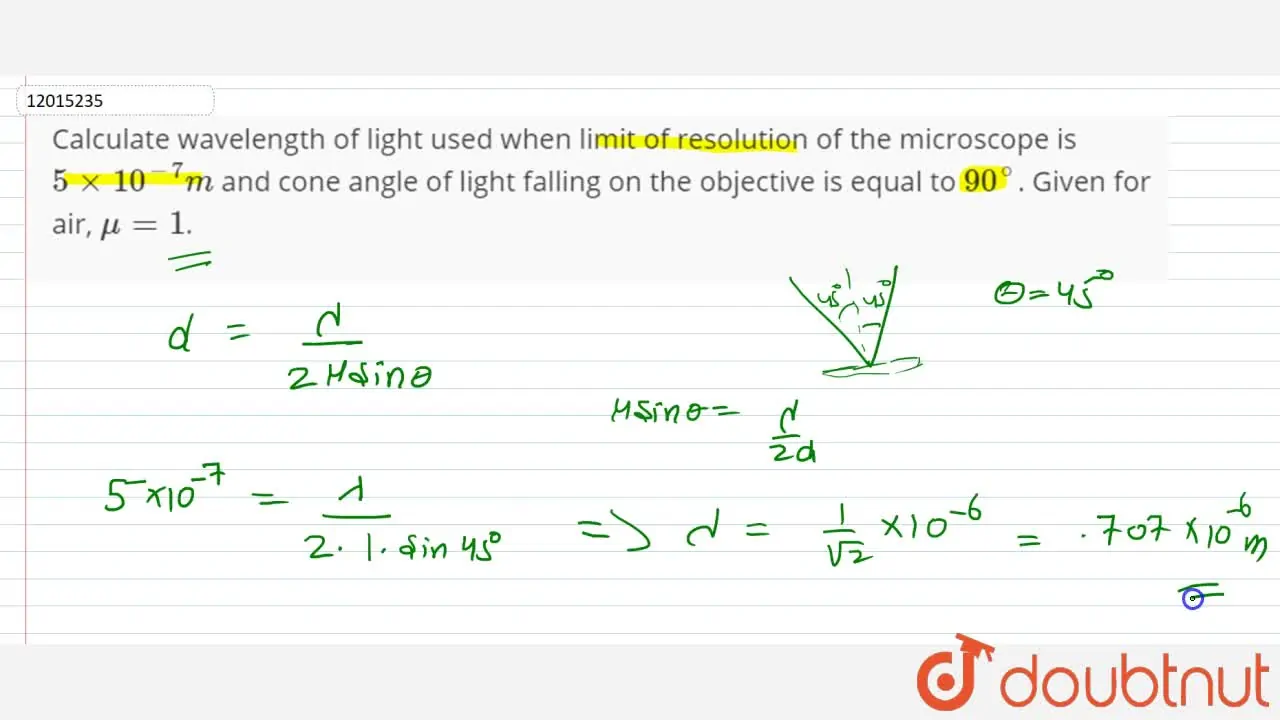 12015235
Calculate wavelength of light used when limit of resolution of the microscope is
5 × 10⁻⁷m and cone angle of light falling on the objective is equal to 90°. Given for
air, μ = 1.
45° 45° θ = 45°
d = λ / 2μsinθ
μsinθ = λ / 2d
5×10⁻⁷ = λ / 2·1·sin45° => λ = 1/√2 ×10⁻⁶ = .707 ×10⁻⁶ m
doubtnut